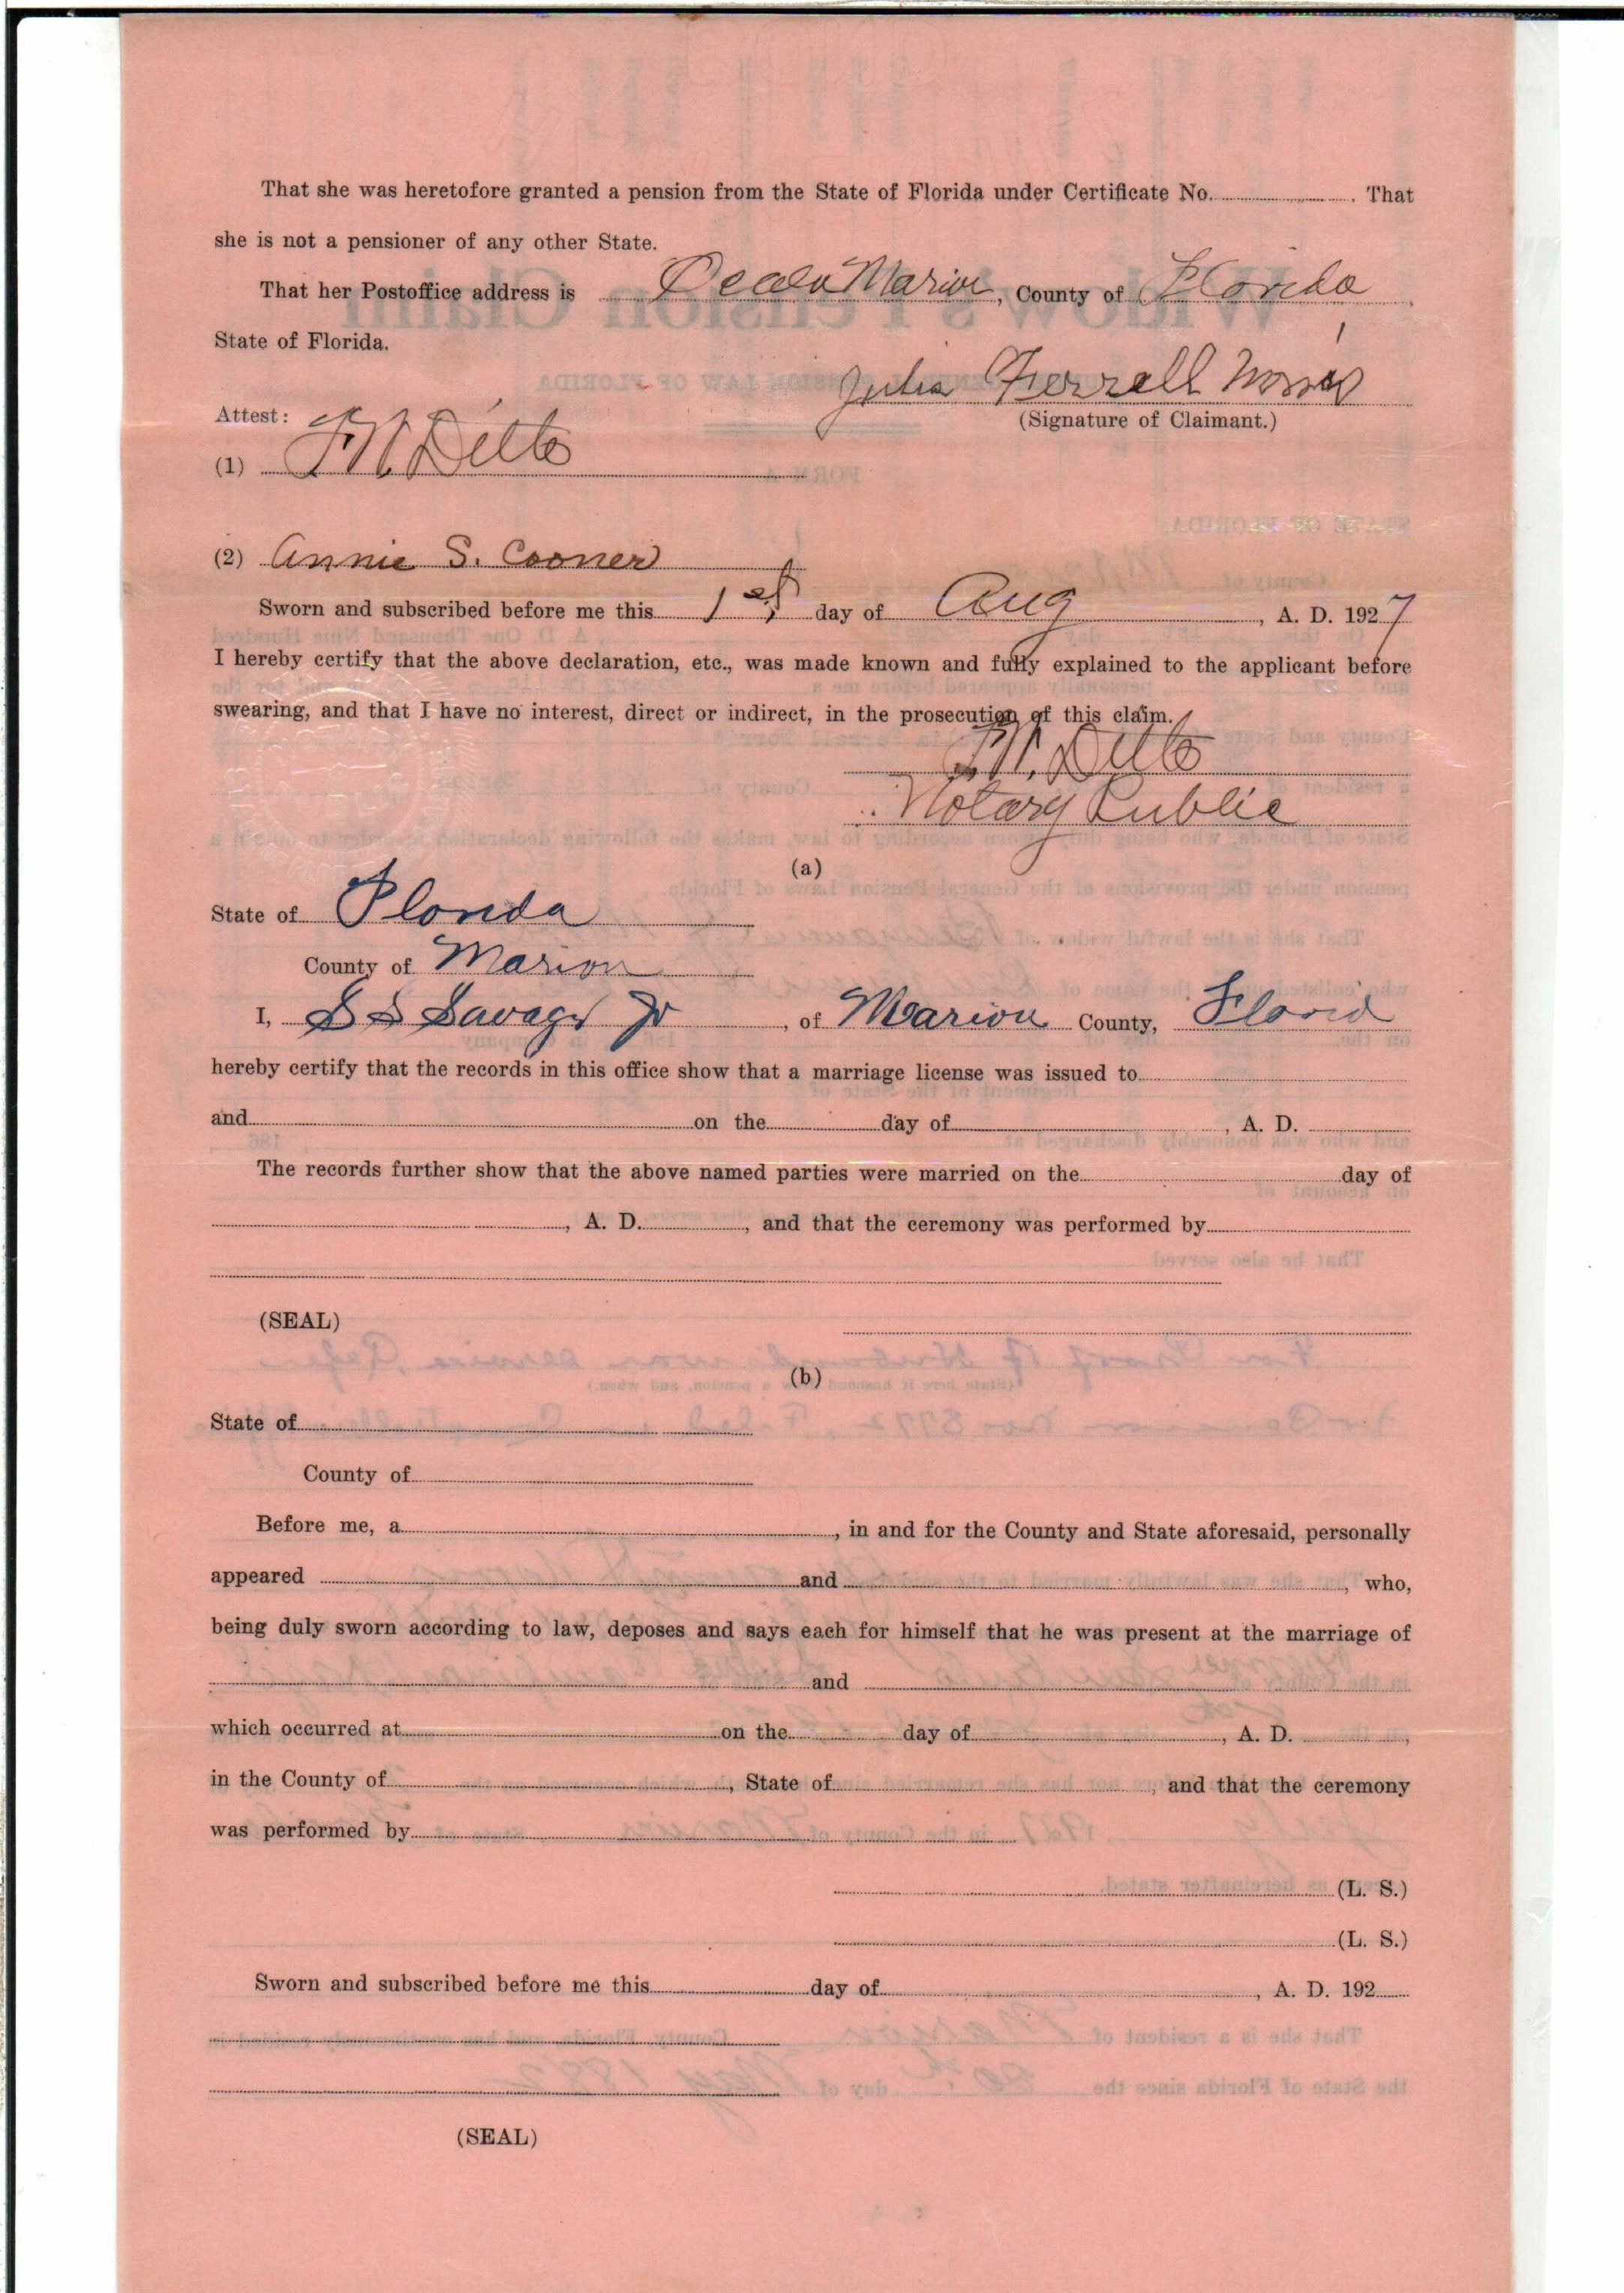 That she was heretofore granted a pension from the State of Florida under Certificate No. . That
she is not a pensioner of any other State.
That her Postoffice address is Ocala Marion, County of Florida,
State of Florida.
Julia Ferrell Norris
Attest: (Signature of Claimant.)
(1) F W Ditto
(2) Annie S. Cooner
Sworn and subscribed before me this 1st day of Aug, A. D. 1927
I hereby certify that the above declaration, etc., was made known and fully explained to the applicant before
swearing, and that I have no interest, direct or indirect, in the prosecution of this claim.
F. W. Ditto
Notary Public
(a)
State of Florida
County of Marion
I, S S Savage Jr, of Marion County, Florid
hereby certify that the records in this office show that a marriage license was issued to
and on the day of , A. D.
The records further show that the above named parties were married on the day of
, A. D. , and that the ceremony was performed by
(SEAL)
(b)
State of
County of
Before me, a , in and for the County and State aforesaid, personally
appeared and , who,
being duly sworn according to law, deposes and says each for himself that he was present at the marriage of
and
which occurred at on the day of , A. D. ,
in the County of , State of , and that the ceremony
was performed by
(L. S.)
(L. S.)
Sworn and subscribed before me this day of , A. D. 192
(SEAL)